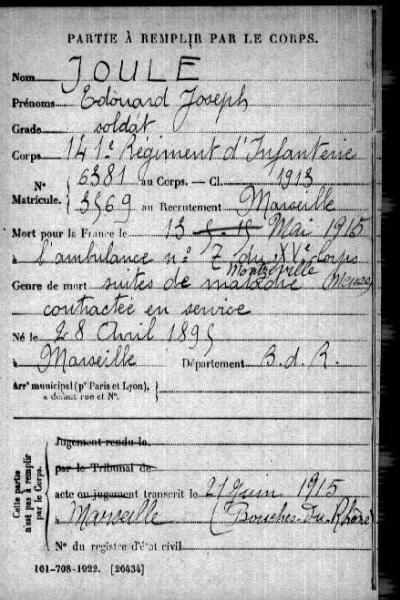 PARTIE À REMPLIR PAR LE CORPS.
Nom JOULE
Prénoms Edouard Joseph
Grade soldat
Corps 141e Régiment d'Infanterie
N° Matricule. { 6381 au Corps. — Cl. 1913
3569 au Recrutement Marseille
Mort pour la France le 13 5 - 15 Mai 1915
à l'ambulance n° 7 du XVe Corps
Montzéville (Meuse)
Genre de mort suites de maladie
contractée en service
Né le 28 Avril 1895
à Marseille Département B. d. R.
Arrt municipal (pr Paris et Lyon),
à défaut rue et N°.
Cette partie n'est pas à remplir par le Corps.
Jugement rendu le
par le Tribunal de
acte ou jugement transcrit le 21 Juin 1915
à Marseille (Bouches-du-Rhône
N° du registre d'état civil
101-708-1922. [26434]